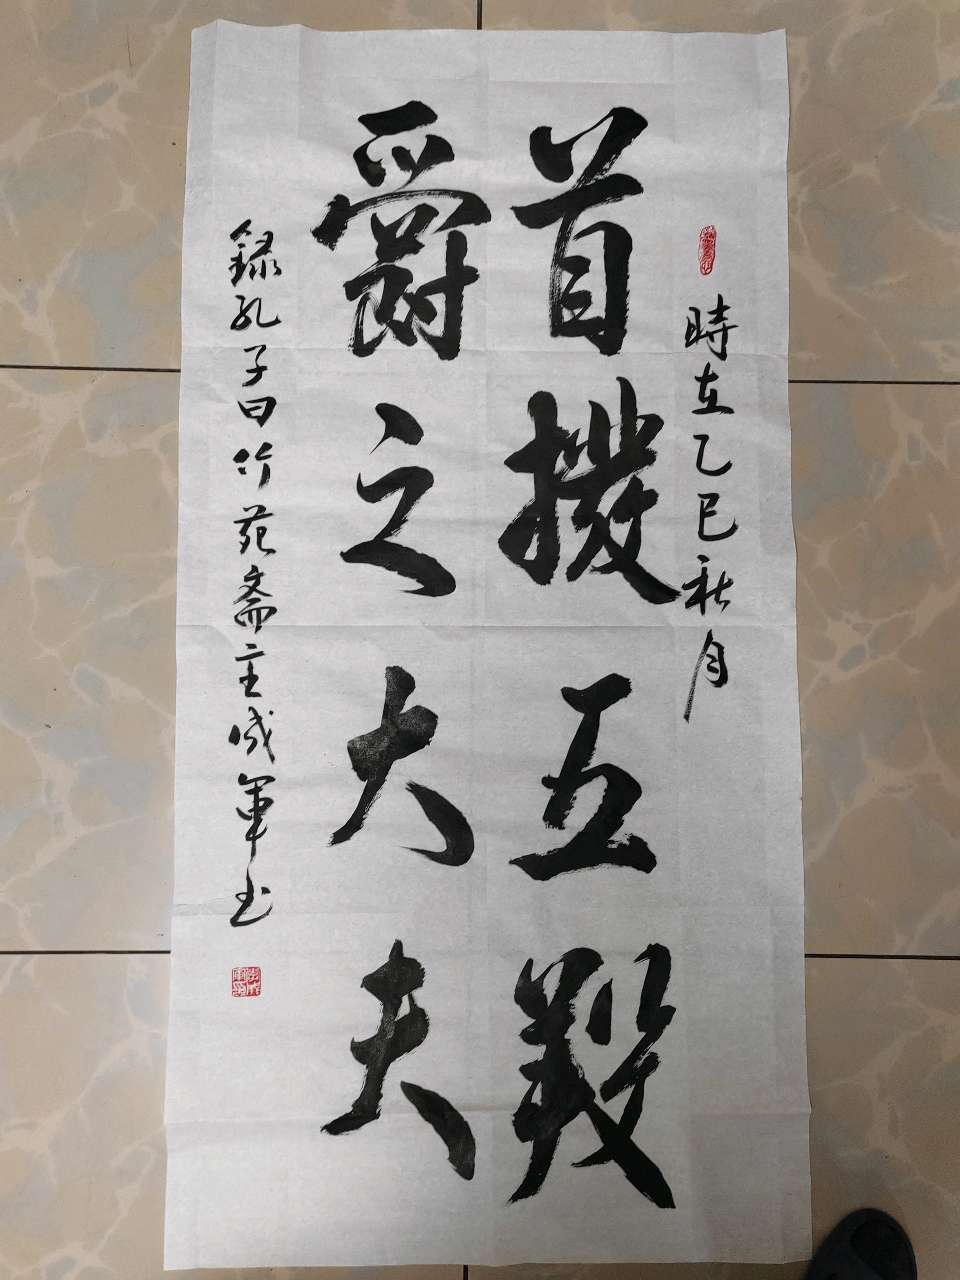 時在乙巳秋月
首撥五羖
爵之大夫
録孔子曰竹苑斋主成軍书